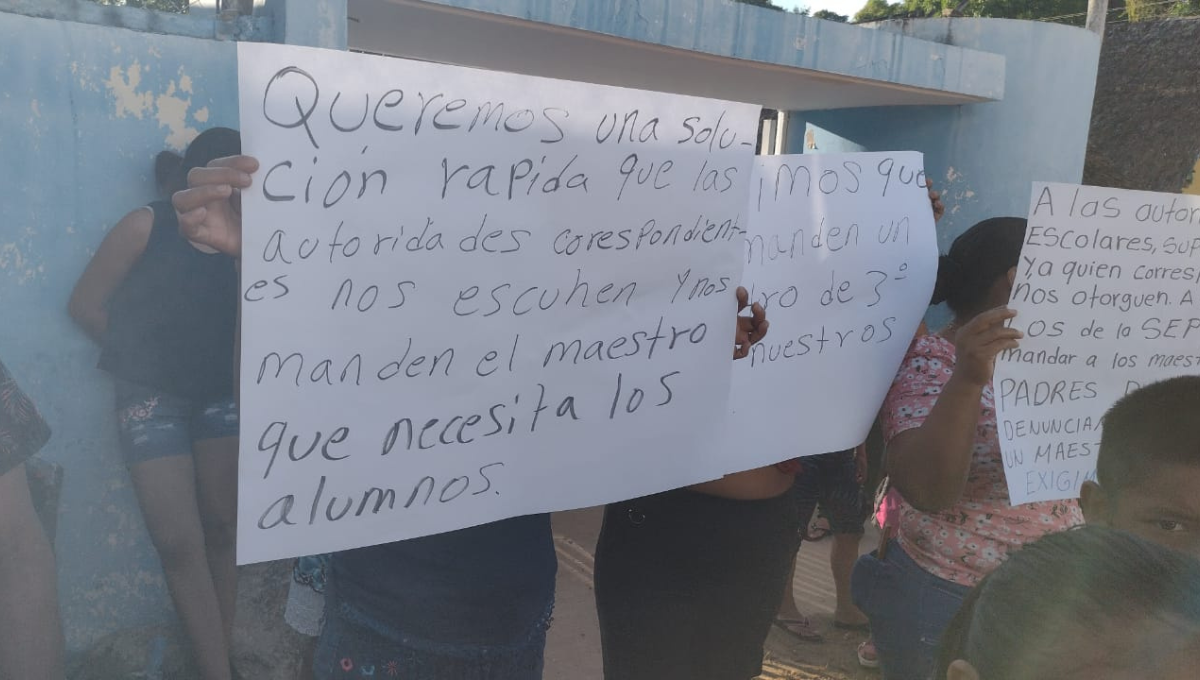 Queremos una solu-
ción rapida que las
autoridades corespondient-
es nos escuhen y nos
manden el maestro
que necesita los
alumnos.
imos que
manden un
tro de 3º
nuestros
A las autor
Escolares, sup
Ya quien corres
nos otorguen. A
Los de la SEP
mandar a los maest
PADRES D
DENUNCIA
UN MAEST
EXIGI